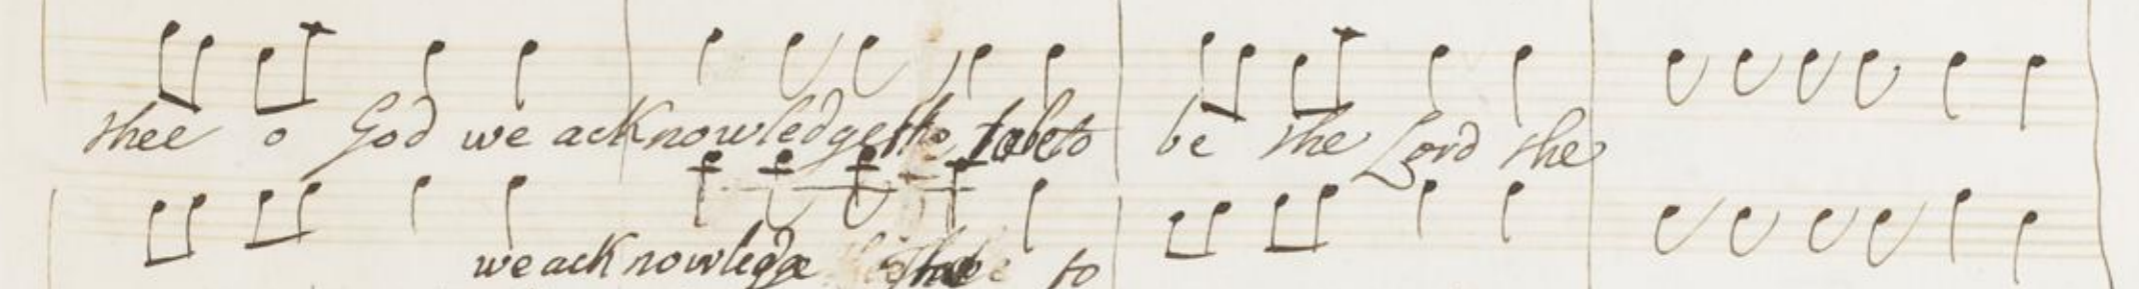 thee o God we acknowledge to be the Lord the
we acknowledge to